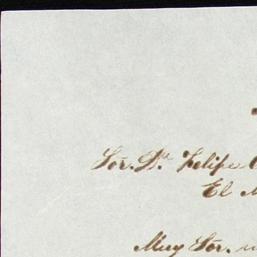 Sor. Dn. Felipe
El
Muy Sor.